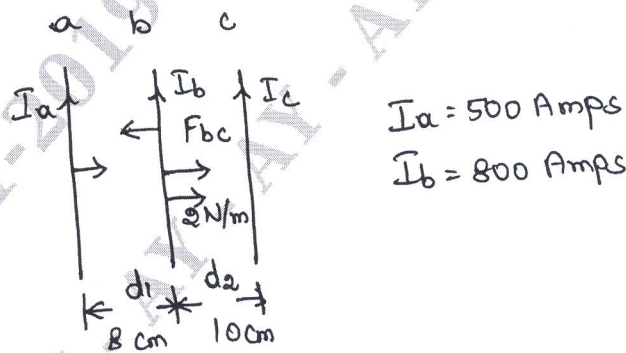 a b c
Ia Ib Ic
Fbc
2N/m
d1 d2
8 cm 10cm
Ia = 500 Amps
Ib = 800 Amps